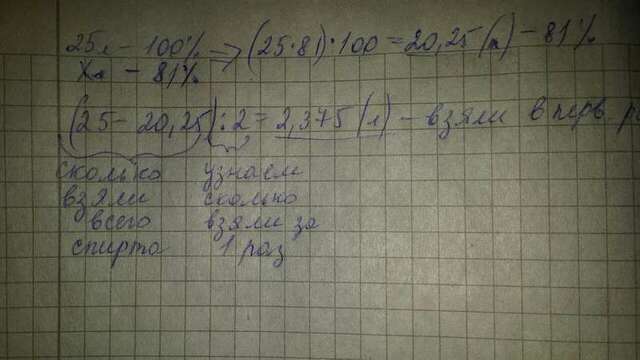 25л – 100% => (25·81):100 = 20,25 (л) – 81%
Xл – 81%
(25 – 20,25) : 2 = 2,375 (л) – взяли в перв
сколько узнаем
взяли сколько
всего взяли за
спирта 1 раз